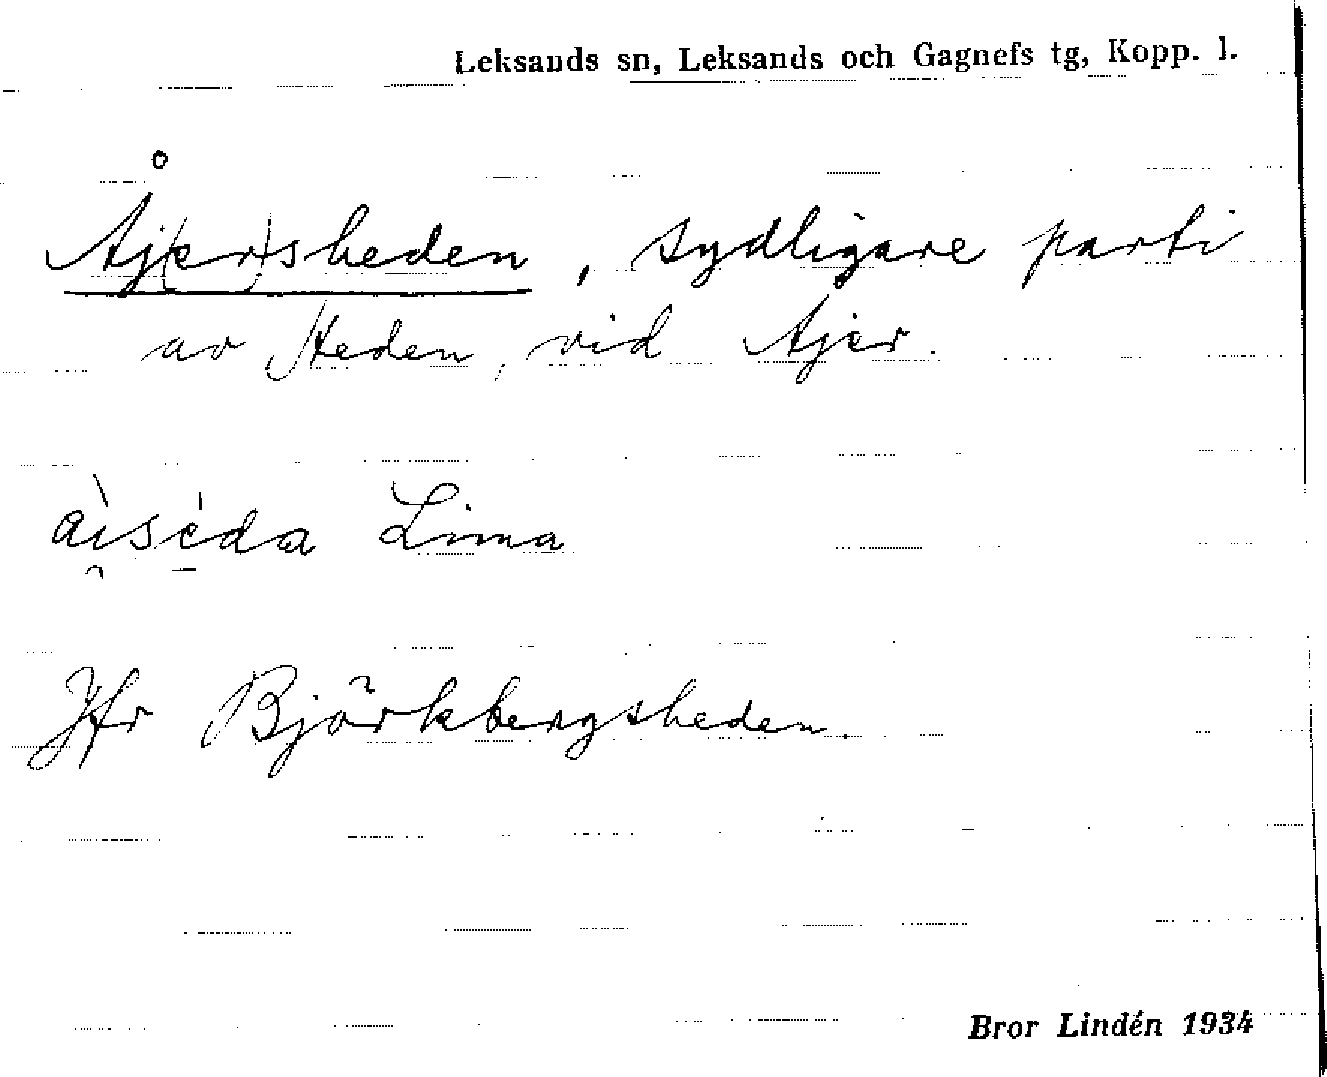 Leksands sn, Leksands och Gagnefs tg, Kopp. l.
Åj(er)sheden, sydligare parti
av Heden, vid Ajer.
ài̯séda Lima
Jfr Björkbergsheden.
Bror Lindén 1934